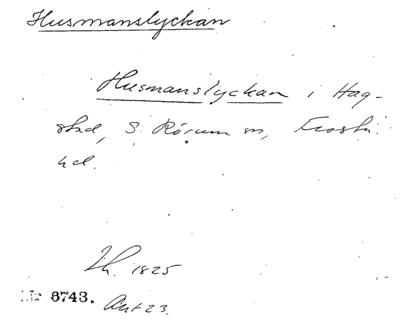 Husmanslyckan
Husmanslyckan i Hag-
stad, S. Rörum sn, Frosta
hd.
Lh. 1825
Nr 6743. Akt 23.